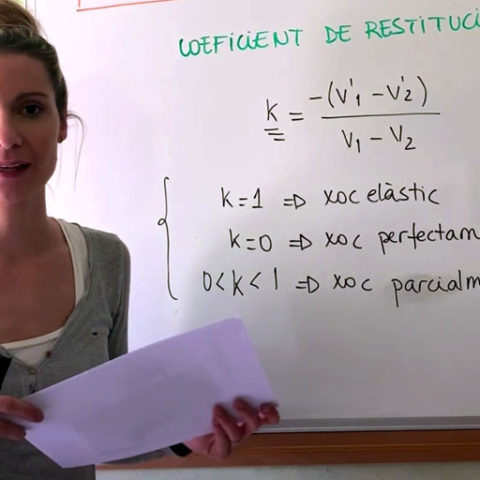 COEFICIENT DE RESTITUCI
k = -(v'₁ - v'₂) / v₁ - v₂
k=1 ⇒ xoc elàstic
k=0 ⇒ xoc perfectam
0<k<1 ⇒ xoc parcialm